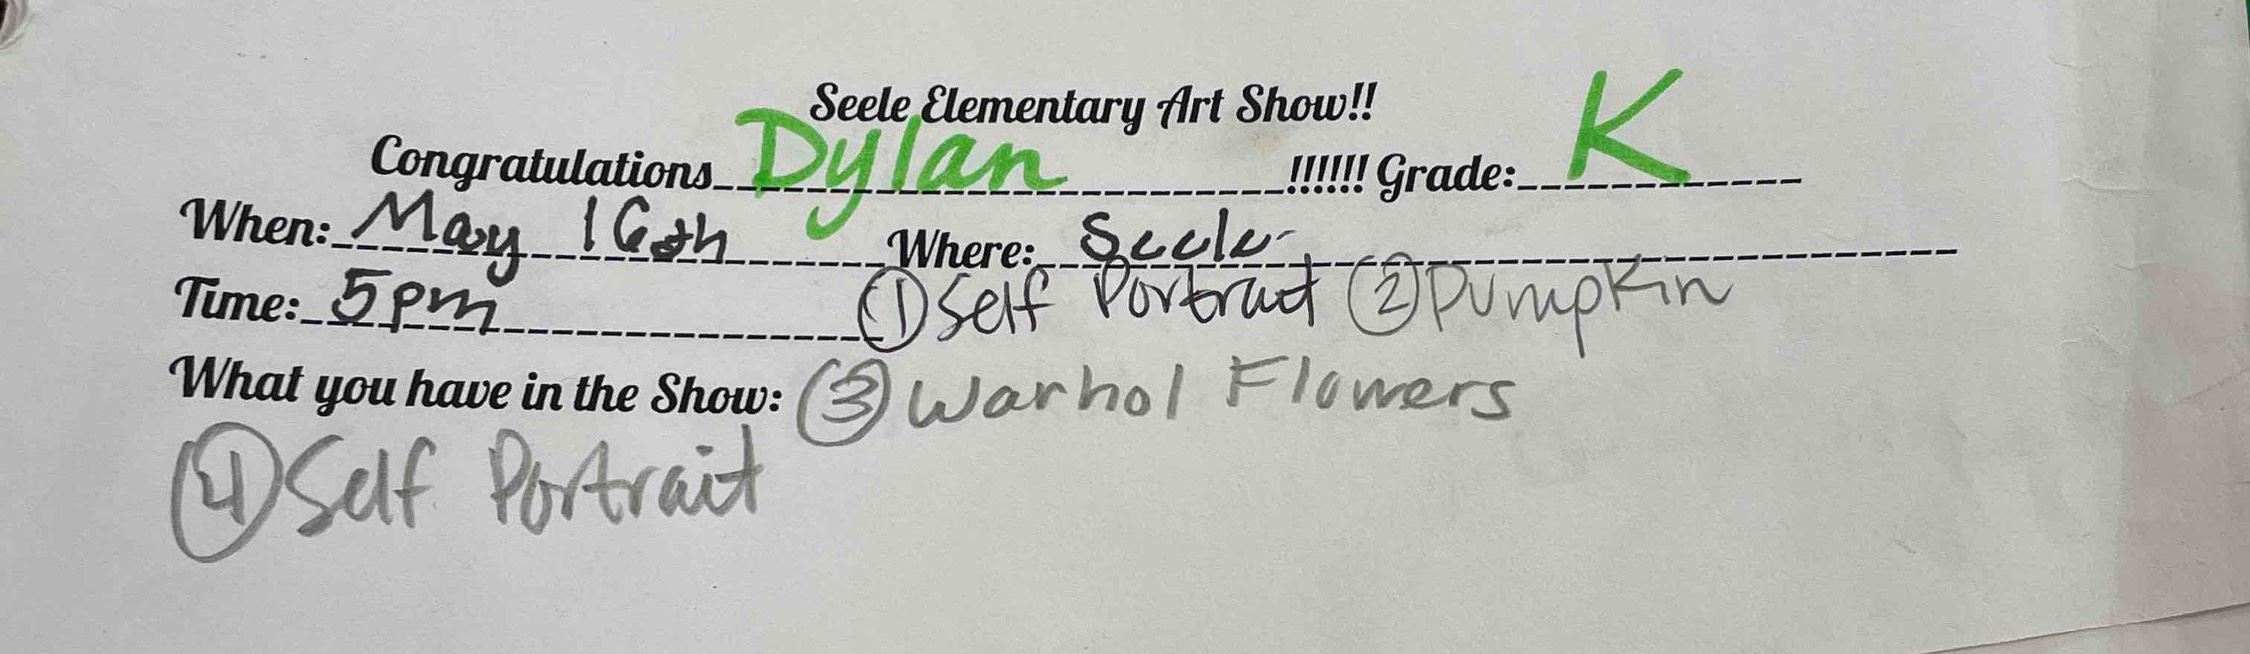 Seele Elementary Art Show!!
Congratulations Dylan !!!!!! Grade: K
When: May 16th Where: Seele
Time: 5pm ① Self Portrait ② Pumpkin
What you have in the Show: ③ Warhol Flowers
④ Self Portrait